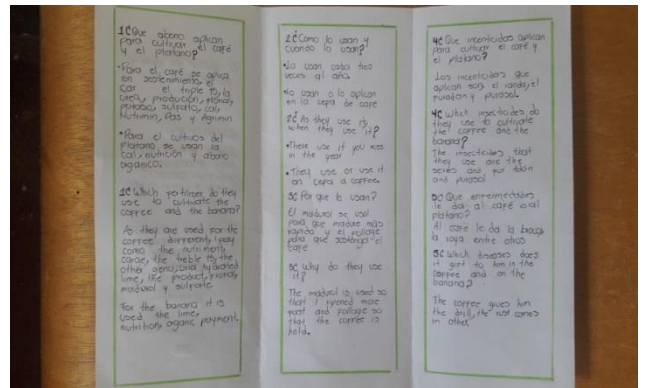 1¿Que abono aplican
para cultivar el café
y el platano?
•Para el café se aplica
son sostenimiento, el
car el triple 15, la
urea, producción,
potasio, sulfato, cal,
Nutrimin, Das y Agrimin
•Para el cultivos del
platano se usan la
cal, nutrición y abono
organico.
1¿Which do they
use to cultivate the
coffee and the banana?
As they are used for the
coffee different,
come the nutriment,
the treble 15, the
other hydrated
lime, the product,
madurol y sulfato
For the banana it is
used the lime,
nutrition, organic payment.
2¿Como lo usan y
cuando lo usan?
•Lo usan cada tres
veces al año
•lo usan o lo aplican
en la cepa de café
2¿As they use it,
when they use it?
•There use it you
in the year
•They use or use it
en cepa a coffee.
3¿Por que lo usan?
El madurol se usa
para que madure más
rapido y el follage
para que sostenga el
café
3¿Why do they use
it?
The madurol is used so
that I more
fast and follage so
that the coffee is
held.
4¿Que incenticidas aplican
para cultivar el café y
el platano?
Los incenticidas que
aplican son, el
y
4¿Which insecticides do
they use to cultivate
the coffee and the
banana?
The insecticides that
they use are the
and
and
5¿Que enfermedades
le da al café o al
platano?
Al café le da la broca
la roya entre otros
5¿Which does
it to him in the
coffee and on the
banana?
The coffee gives him
the drill, the rust comes
in other